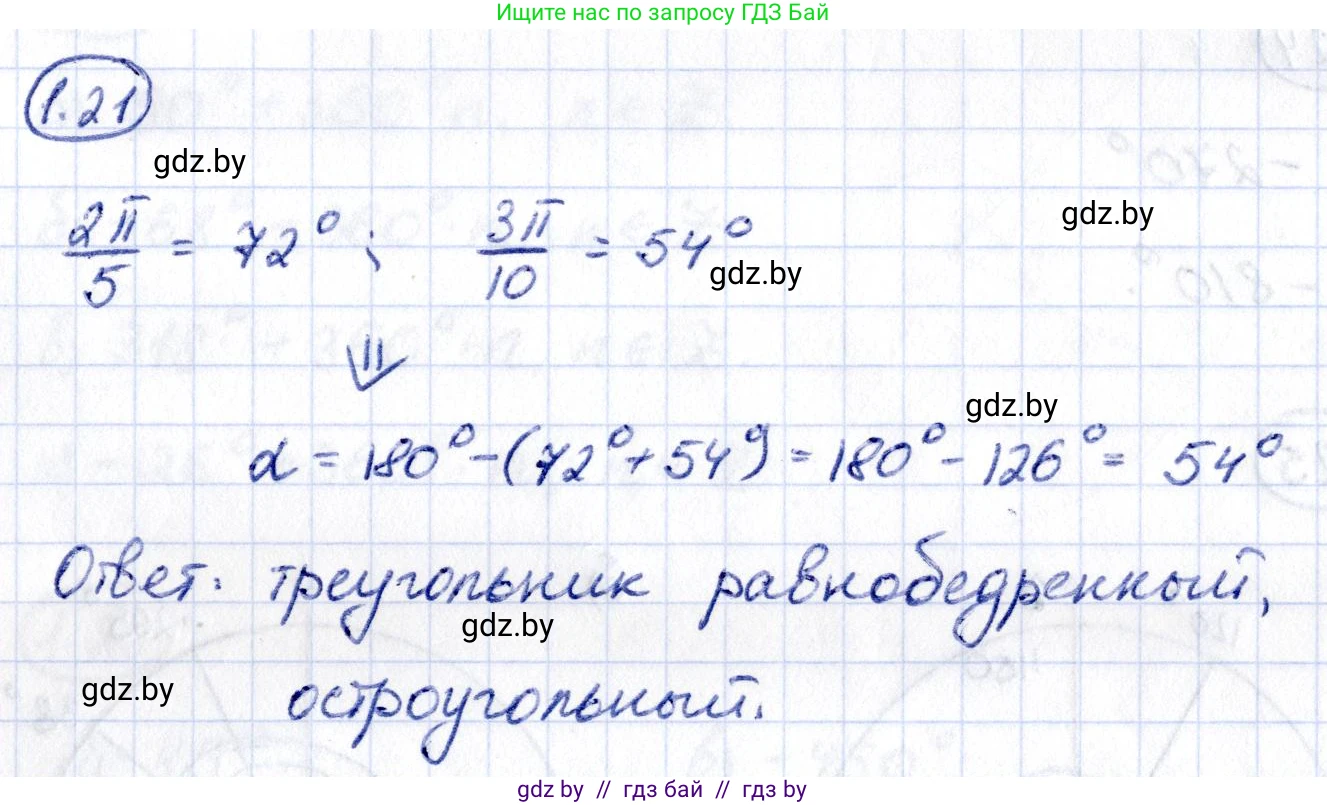 Ищите нас по запросу ГДЗ Бай
1.21
gdz.by
2π/5 = 72° ; 3π/10 = 54°
gdz.by
gdz.by
⇓
gdz.by
α = 180° - (72° + 54°) = 180° - 126° = 54°
Ответ: треугольник равнобедренный,
gdz.by
gdz.by
остроугольный.
gdz.by // гдз бай // гдз by